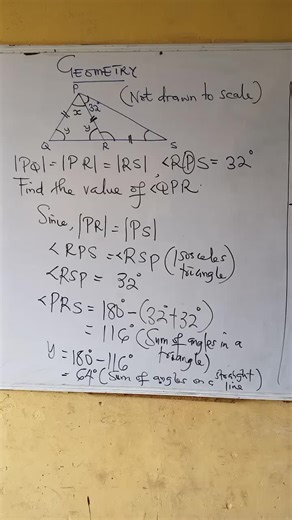 GEOMETRY
P
x 32°
(Not drawn to scale)
y y
Q R S
|PQ| = |PR| = |RS|, <RPS = 32°
Find the value of <QPR.
Since, |PR| = |PS|
<RPS = <RSP (Isosceles triangle)
<RSP = 32°
<PRS = 180° - (32° + 32°)
= 116° (Sum of angles in a triangle)
y = 180° - 116°
= 64° (Sum of angles on a straight line)